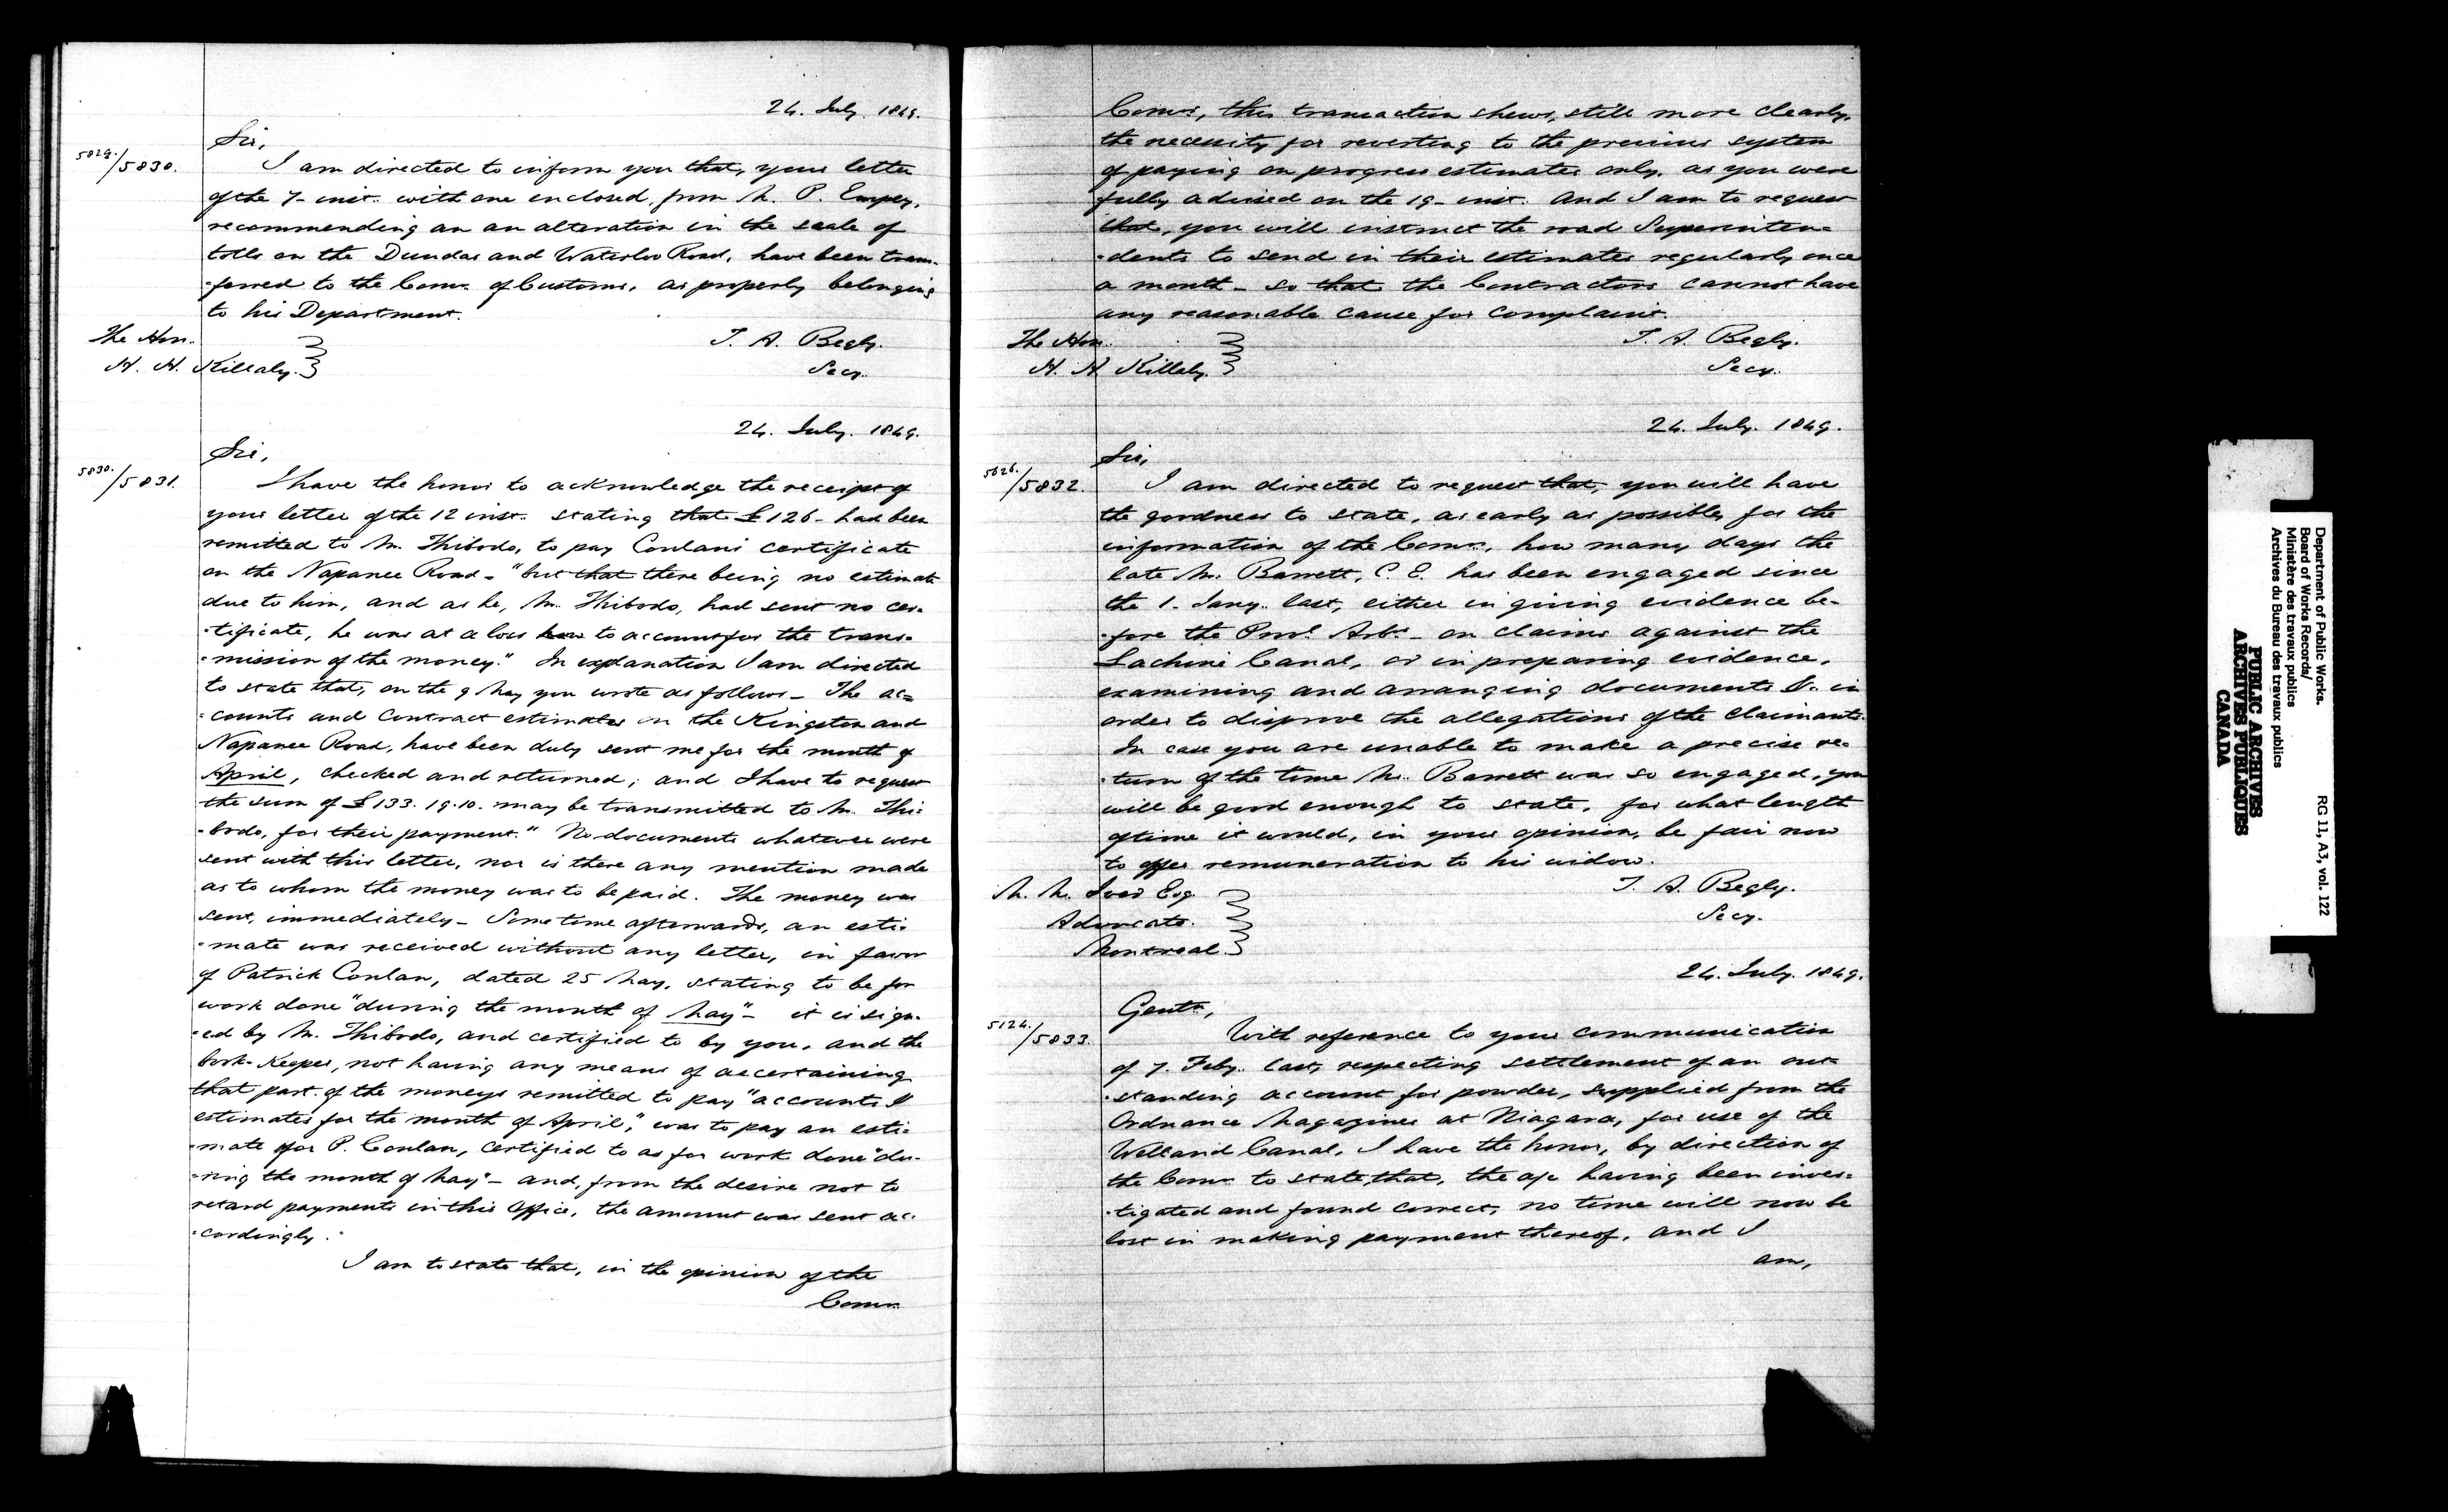 24. July. 1849.
Sir,
5829./5830.
I am directed to inform you that, your letter
of the 7- inst. with one enclosed, from M. P. Empey,
recommending an an alteration in the scale of
tolls on the Dundas and Waterloo Road, have been trans-
-ferred to the Comrs. of Customs, as properly belonging
to his Department.
The Hon.
T. A. Begly.
H. H. Killaly.
Secy.
24. July. 1849.
Sir,
5830./5831.
I have the honor to acknowledge the receipt of
your letter of the 12 inst. stating that £126- had been
remitted to M. Thibodo, to pay Conlans certificate
on the Napanee Road - "but that there being no estimate
due to him, and as he, M. Thibodo, had sent no cer-
-tificate, he was at a loss how to account for the trans-
-mission of the money." In explanation I am directed
to state that, on the 9 May you wrote as follows - The ac=
-counts and Contract estimates on the Kingston and
Napanee Road, have been duly sent me for the month of
April, checked and returned; and I have to request
the sum of £133. 19. 10. may be transmitted to M. Thi-
-bodo, for their payment." No documents whatever were
sent with this letter, nor is there any mention made
as to whom the money was to be paid. The money was
sent, immediately - Some time afterwards, an esti-
-mate was received without any letter, in favor
of Patrick Conlan, dated 25 May, stating to be for
work done "during the month of May" - it is sign-
-ed by M. Thibodo, and certified to by you, and the
book-Keeper, not having any means of ascertaining
that part of the moneys remitted to pay "accounts &
estimates for the month of April," was to pay an esti-
-mate for P. Conlan, certified to as for work done "du-
-ring the month of May" - and, from the desire not to
retard payments in this Office, the amount was sent ac-
-cordingly.
I am to state that, in the opinion of the
Comrs.
Comrs, this transaction shews, still more clearly,
the necessity for reverting to the previous system
of paying on progress estimates only, as you were
fully advised on the 19- inst. And I am to request
that, you will instruct the road Superinten-
-dents to send in their estimates regularly once
a month - so that the Contractors cannot have
any reasonable cause for complaint.
The Hon.
T. A. Begly.
H. H. Killaly.
Secy.
24. July. 1849.
Sir,
5626./5832.
I am directed to request that, you will have
the goodness to state, as early as possible, for the
information of the Comrs., how many days the
late M. Barrett, C. E. has been engaged since
the 1. Jany. last, either in giving evidence be-
-fore the Provl. Arbs. - on claims against the
Lachine Canal, or in preparing evidence,
examining and arranging documents &c. in
order to disprove the allegations of the claimants.
In case you are unable to make a precise re-
-turn of the time M. Barrett was so engaged, you
will be good enough to state, for what length
of time it would, in your opinion, be fair now
to offer remuneration to his widow.
T. A. Begly.
Esq.
Secy.
Advocate.
Montreal.
24. July. 1849.
Gents,
5124./5833.
With reference to your communication
of 7. Feby. last, respecting settlement of an out-
-standing account for powder, supplied from the
Ordnance Magazines at Niagara, for use of the
Welland Canal, I have the honor, by direction of
the Comrs. to state, that, the a/c having been inves-
-tigated and found correct, no time will now be
lost in making payment thereof. and I
am,
Department of Public Works.
Board of Works Records/
Ministère des travaux publics
Archives du Bureau des travaux publics
RG 11, A3, vol. 122
PUBLIC ARCHIVES
ARCHIVES PUBLIQUES
CANADA